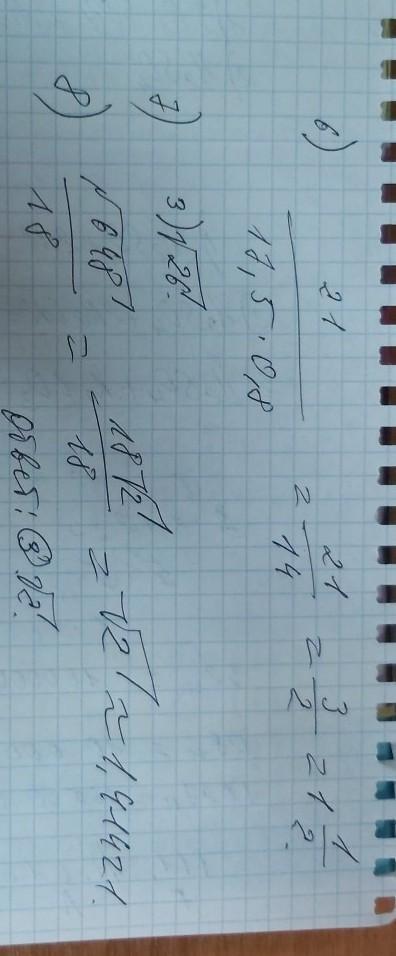 6) 21 / 17,5 · 0,8 = 21/14 = 3/2 = 1 1/2.
7) 3) √26.
8) √648 / 18 = 18√2 / 18 = √2 ≈ 1,41421.
Ответ: 3) √2.